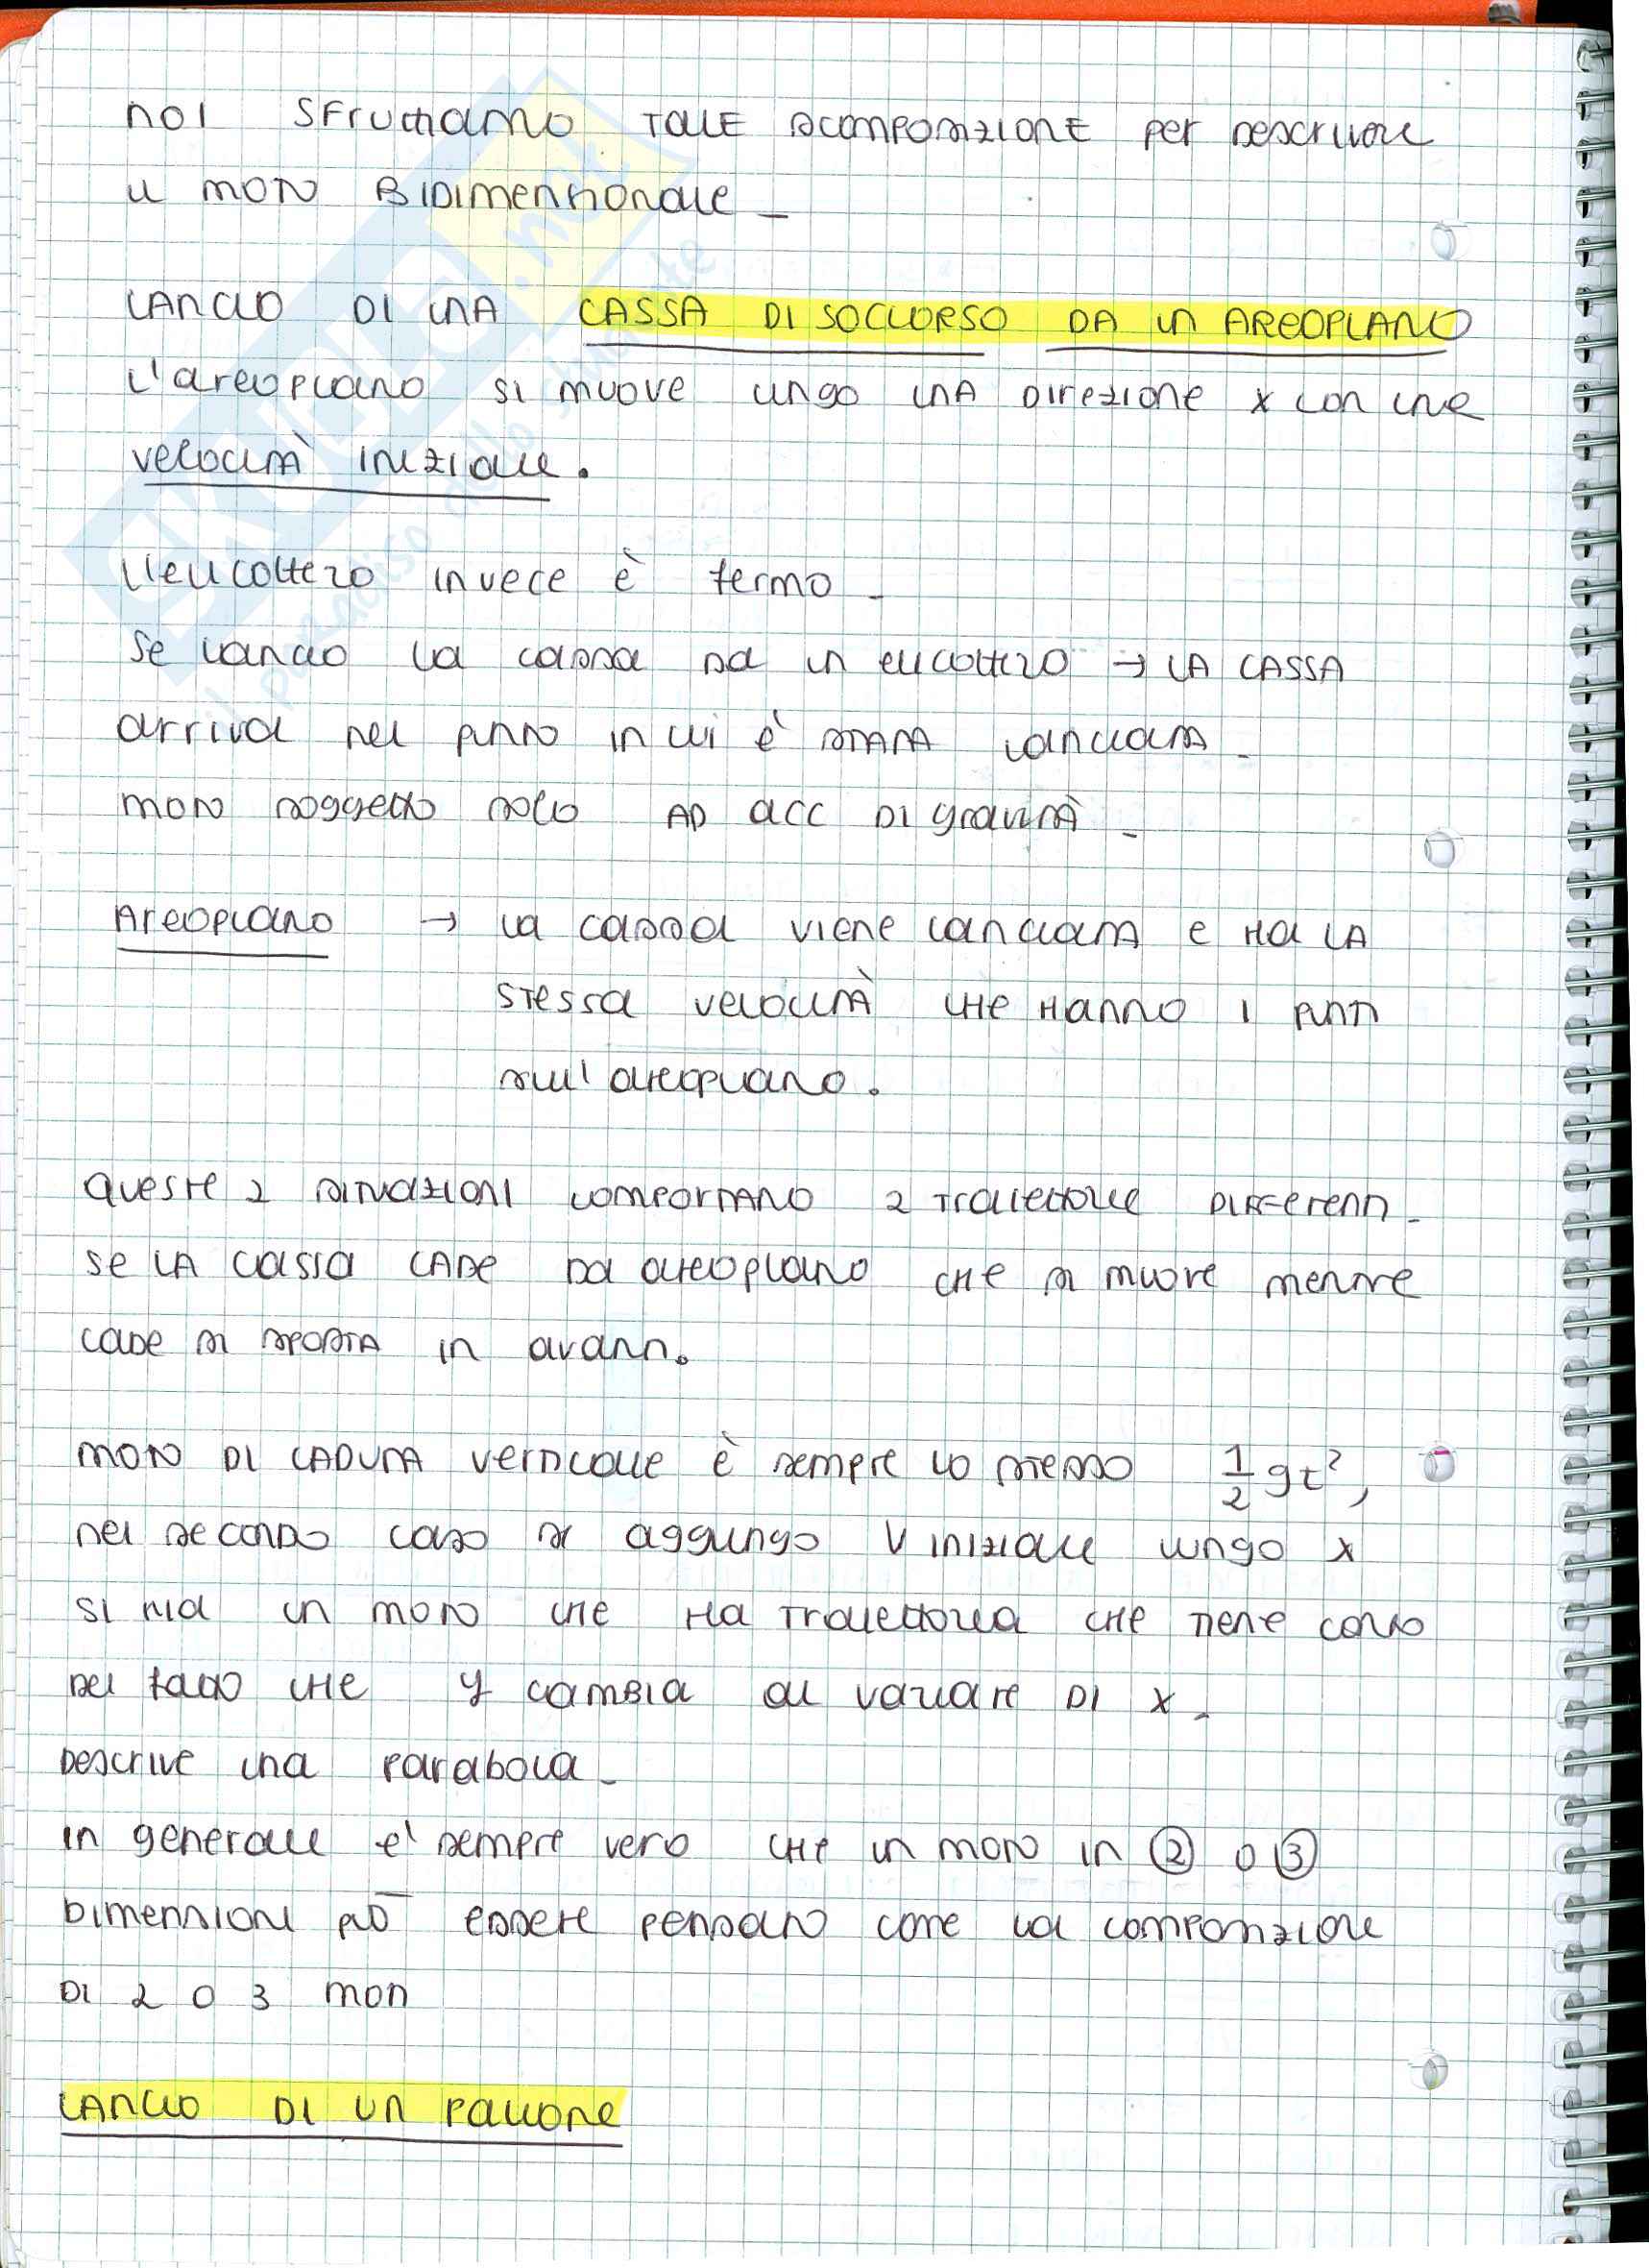 noi sfruttiamo tale scomposizione per descrivere
il moto bidimensionale_
LANCIO DI UNA CASSA DI SOCCORSO DA UN AREOPLANO
L'areoplano si muove lungo una direzione x con una
velocità iniziale.
L'elicottero invece è fermo_
Se lancio la cassa da un elicottero → LA CASSA
arriva nel punto in cui è stata lanciata_
moto soggetto solo AD acc DI gravità_
Areoplano → la cassa viene lanciata e ha LA
stessa velocità che hanno i punti
sull'areoplano.
queste 2 situazioni comportano 2 traiettorie differenti_
se LA cassa cade da areoplano che si muove mentre
cade si sposta in avanti.
moto DI caduta verticale è sempre lo stesso 1/2 gt²,
nel secondo caso se aggiungo V iniziale lungo x
si ha un moto che ha traiettoria che tiene conto
del fatto che y cambia al variare DI x_
descrive una parabola_
in generale e' sempre vero che un moto in ② o ③
dimensioni può essere pensato come la composizione
DI 2 o 3 moti
LANCIO DI UN PALLONE
SKUOLA.net
il paradiso dello studente